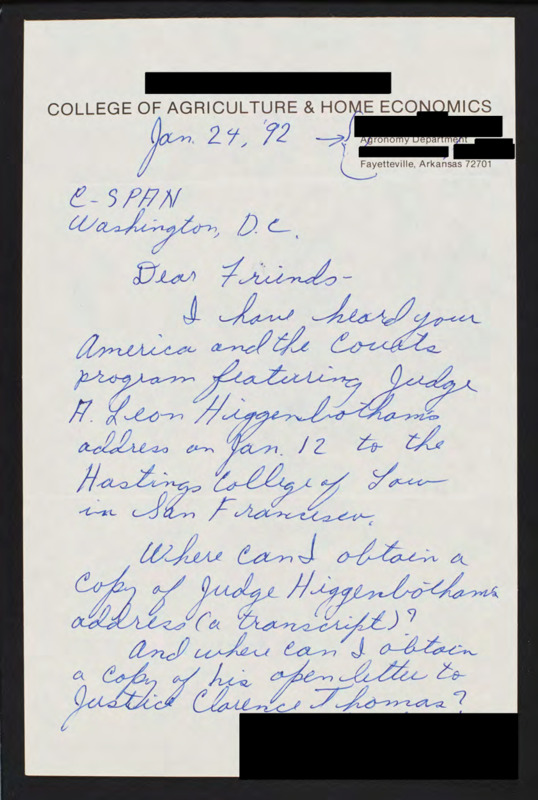 COLLEGE OF AGRICULTURE & HOME ECONOMICS
Jan. 24, '92 →
Agronomy Department
Fayetteville, Arkansas 72701
C-SPAN
Washington, D.C.
Dear Friends-
I have heard your
America and the Courts
program featuring Judge
A. Leon Higgenbothams
address on Jan. 12 to the
Hastings College of Law
in San Francisco.
Where can I obtain a
copy of Judge Higgenbothams
address (a transcript)?
And where can I obtain
a copy of his open letter to
Justice Clarence Thomas?